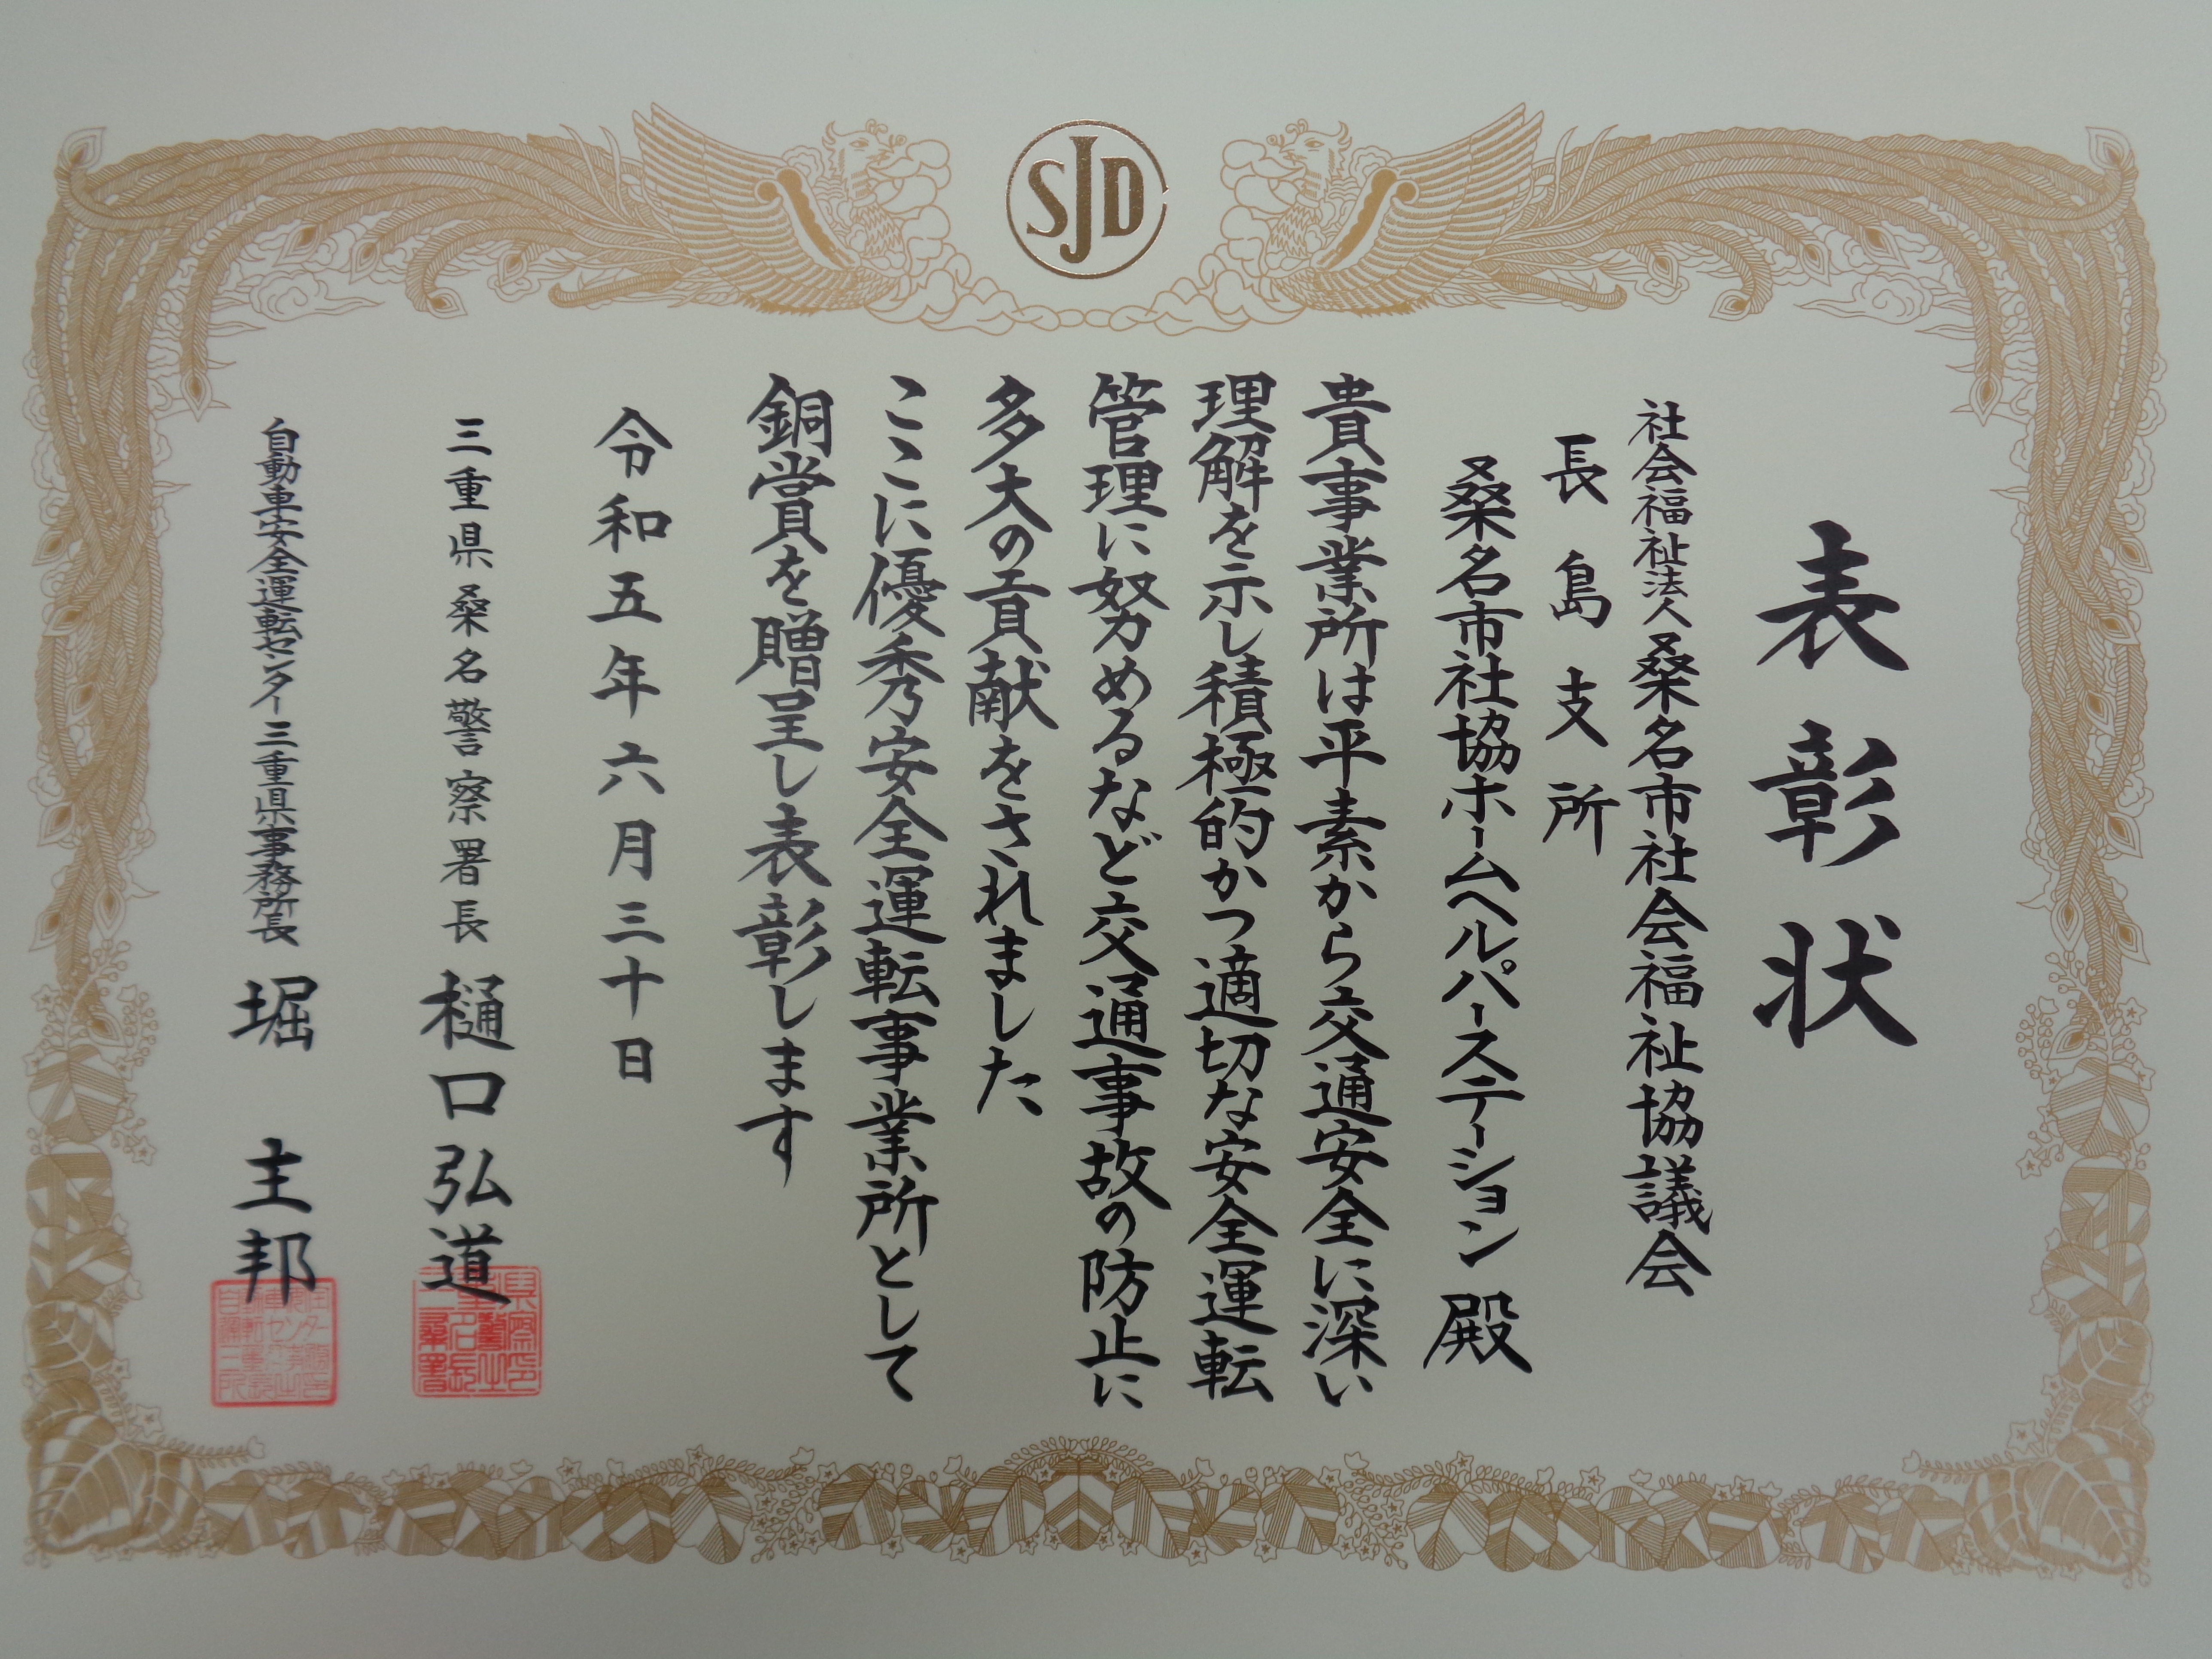 SJD
表彰状
社会福祉法人桑名市社会福祉協議会
長島支所
桑名市社協ホームヘルパーステーション 殿
貴事業所は平素から交通安全に深い
理解を示し積極的かつ適切な安全運転
管理に努めるなど交通事故の防止に
多大の貢献をされました
ここに優秀安全運転事業所として
銅賞を贈呈し表彰します
令和五年六月三十日
三重県桑名警察署長 樋口弘道
自動車安全運転センター三重県事務所長 堀 主邦